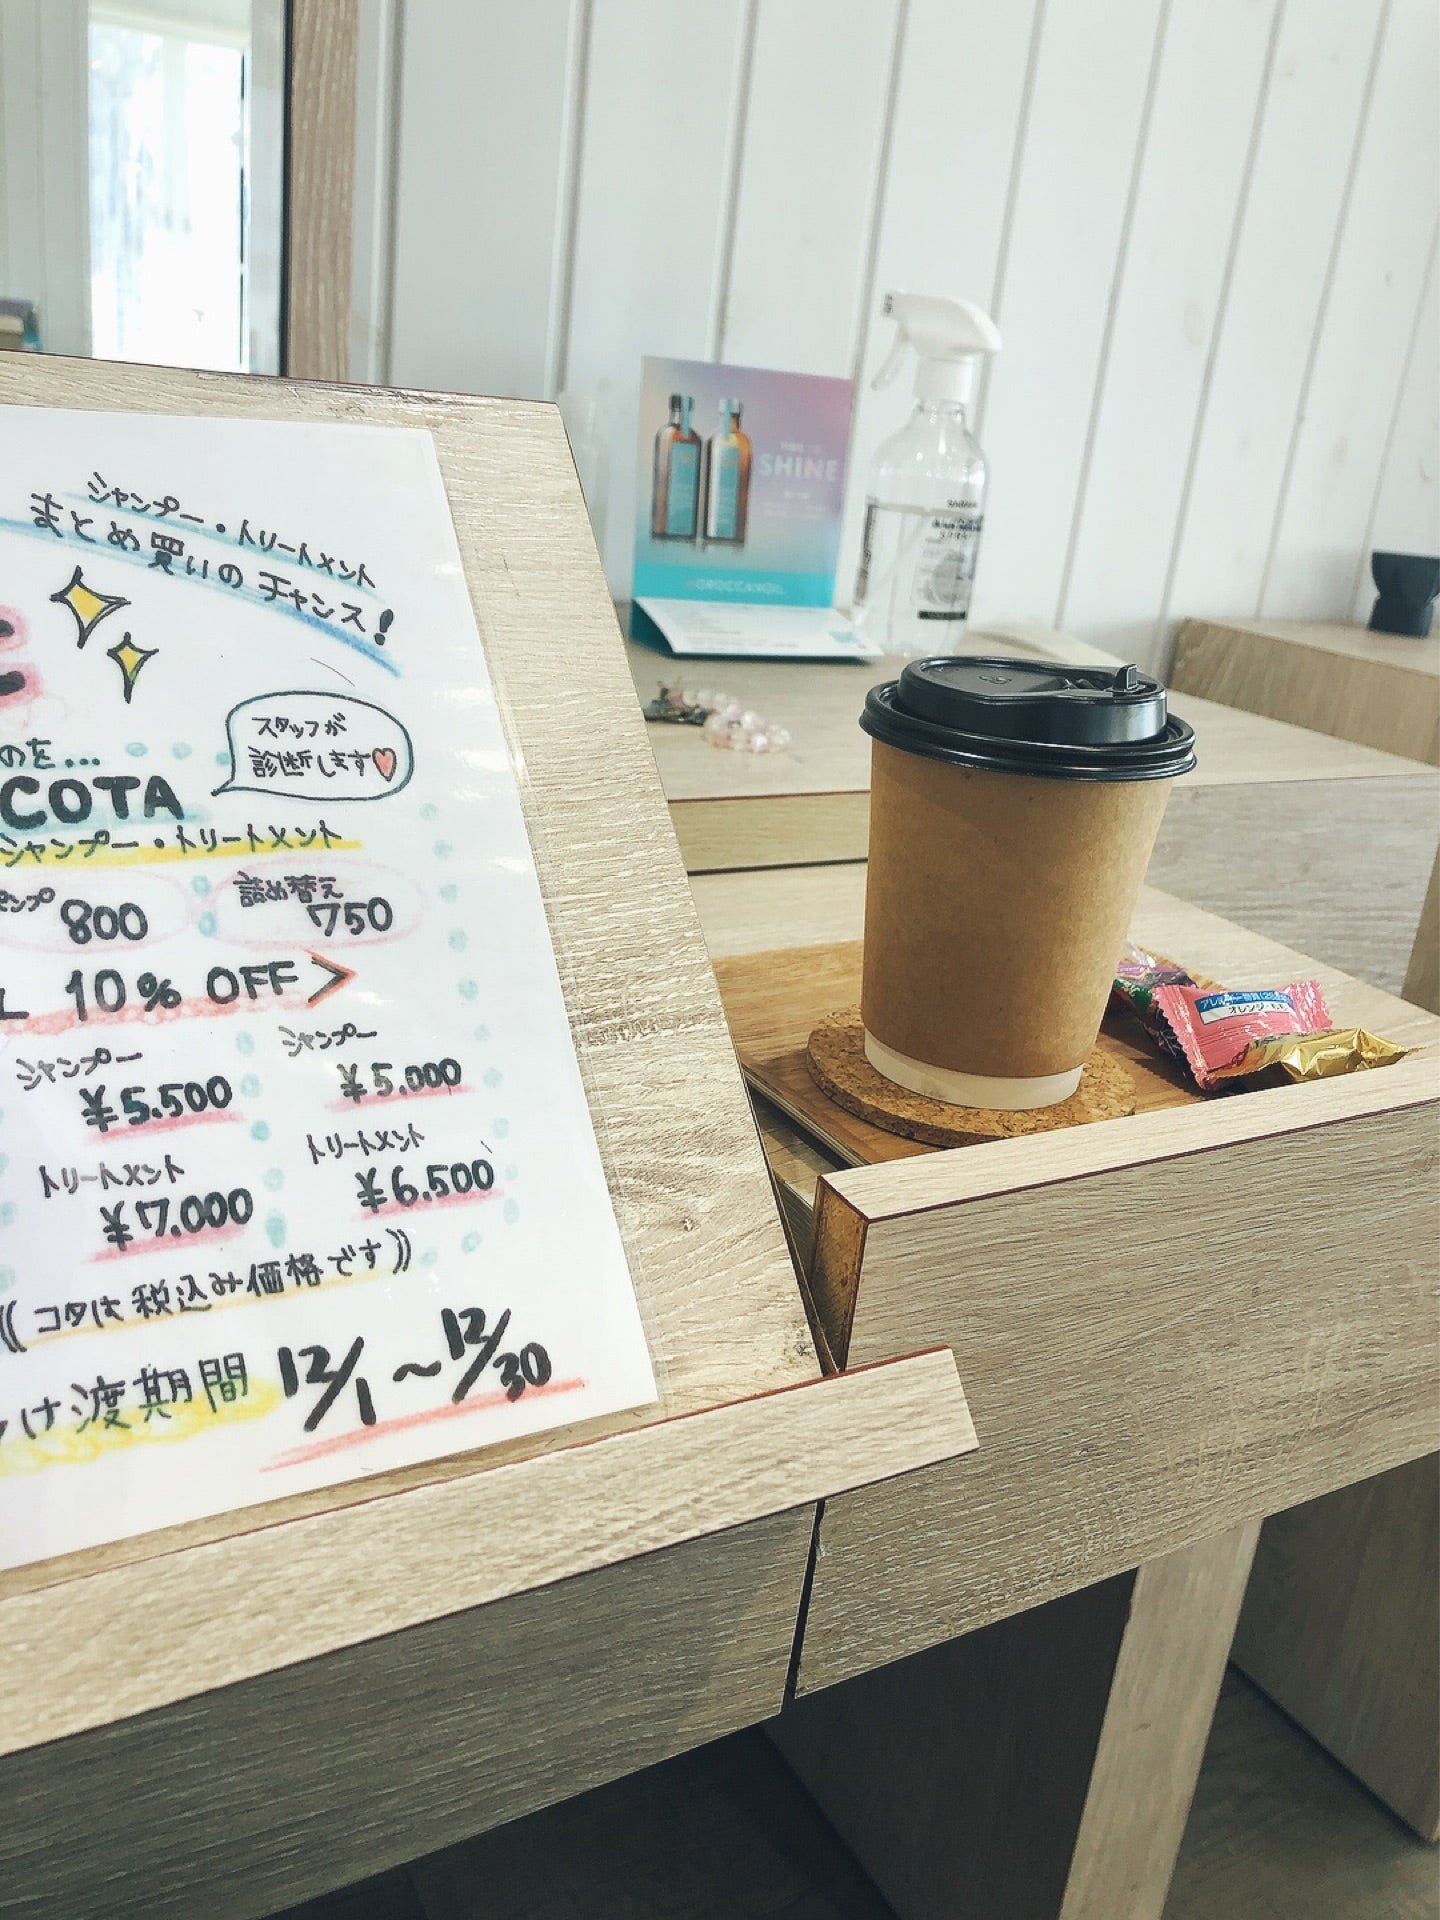 シャンプー・トリートメント
まとめ買いのチャンス!
スタッフが
診断します
のを...
COTA
シャンプー・トリートメント
800
詰め替え
750
10% OFF>
シャンプー
¥5.500
シャンプー
¥5.000
トリートメント
¥7.000
トリートメント
¥6.500
((コタは税込み価格です))
け渡期間 12/1~12/30
SHINE
MOROCCANOIL
オレンジ・もも